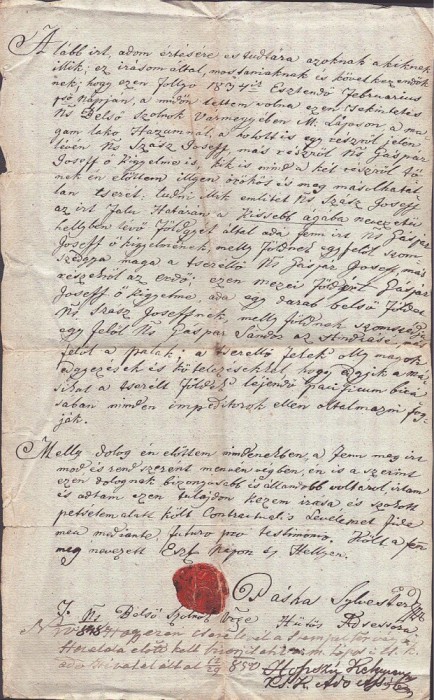 Alább irt, adom értésére és tudtára azoknak a kiknek
illik: ez irásom által, mostaniaknak és következendők
nek; hogy ezen folyo 1834ik Esztendő Februarius
napján, a midőn lettem volna ezen Tekintetes
Ns Belső Szolnok Vármegyében M. Láposon, a ma
gam lakó Házamnál, a holott is egy részről jelen
lévén Ns Szász Joseff, más részről Ns Gáspár
Joseff ő kigyelme is, kik is mind a két részről tő
nek én előttem illyen örökös és meg másolhatat
lan tserét: tudni illik emlitet Ns Szász Joseff
az irt Falu Határán a Kissebb ágaba nevezetü
hellyben lévő Földgyét által adá fenn irt Ns Gáspár
Joseff ő kigyelmének, melly földnek egyfelől szom
szédgya maga a tseréllő Ns Gáspár Joseff, más
részről az erdő; ezen mezei földgyét Gáspár
Joseff ő kigyelme, ada egy darab belső Földet
Ns Szász Joseffnek, melly földnek szomszédgya
egy felől Ns Gáspár Sándor az András más
felől a patak; a tseréllő felek olly magok
egyezések és kötelezésekkel hogy egyik a má
sikat a tserélt földek lejendő pacificum birá
sában minden impeditorok ellen oltalmazni fog
ják.
Melly dolog én előttem mindenekben, a fenn meg irt
mód és rend szerent menvén végben, én is a szerint
ezen dolognak bizonyosabb és állandobb voltárol, irtam
és adtam ezen tulajdon kezem irása, és szokott
petsétem alatt költ Contractualis Levelemet fide
mea mediante, futuro pro testimonio. Költ a fen
meg nevezett Eszt Napon és Hellyen.
Páska Sylvester
Ns Belső Szolnok Vgye Hütös Assessora
Hogy ezen Cserelevél
előtt
hivatal által 1850